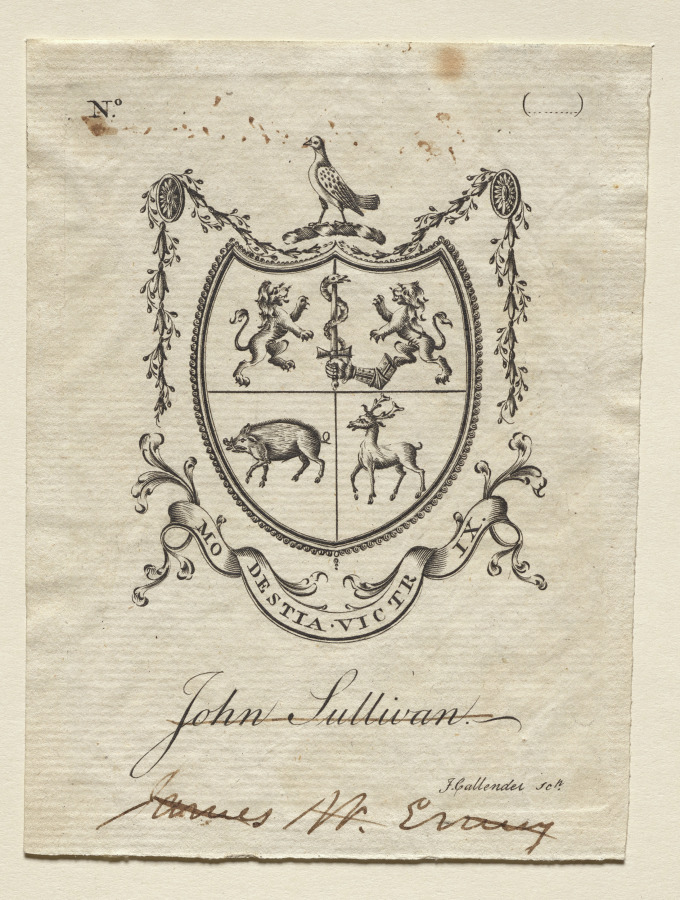 N.º (.........)
MODESTIA·VICTRIX.
John Sullivan.
J. Callender Sct.
James W. Emery